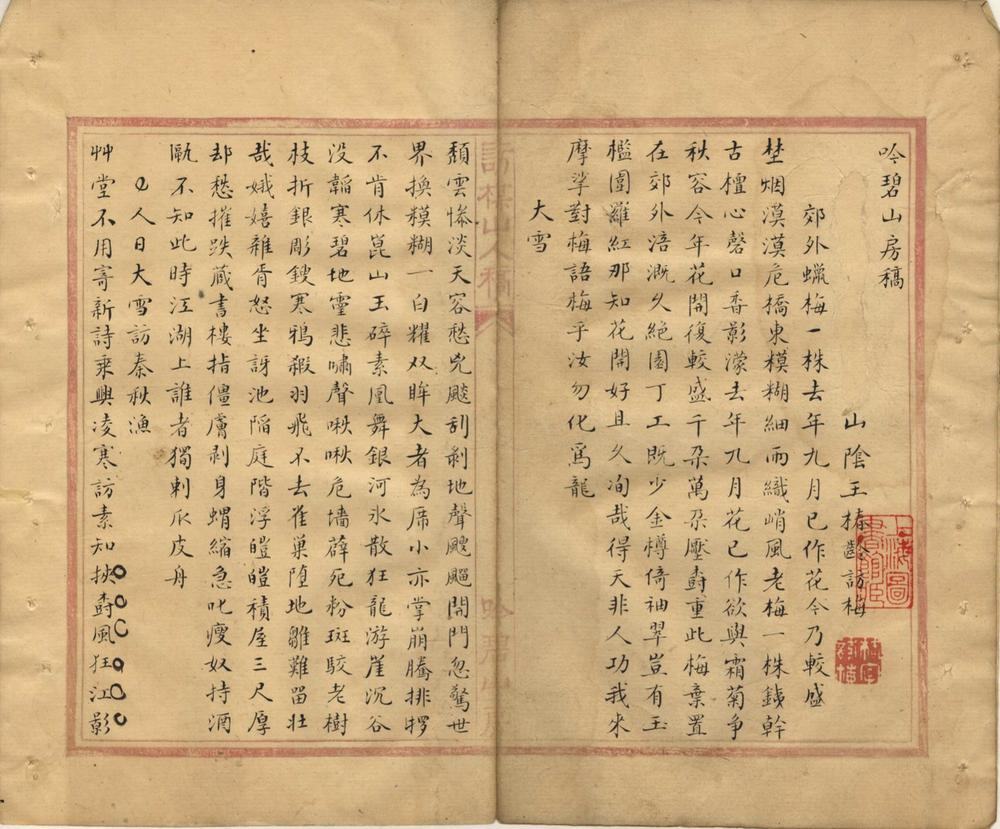 吟碧山房稿
山陰王椿齡訪梅
郊外蠟梅一株去年九月已作花今乃較盛
埜烟漠漠危橋東模糊細雨織峭風老梅一株鐵幹
古檀心磬口香影濛去年九月花已作欲與霜菊爭
秋容今年花開復較盛千朶萬朶壓尌重此梅棄置
在郊外涪溉久絕園丁工既少金樽倚袖翠豈有玉
檻圍羅紅那知花開好且久洵哉得天非人功我來
摩挲對梅語梅乎汝勿化爲龍
大雪
頽雲慘淡天容愁兇飈刮剎地聲颼飀開門忽驚世
界換糢糊一白耀双眸大者為席小亦掌崩騰排
不肯休崑山玉碎素凰舞銀河氷散狂龍游崖沉谷
没韜寒碧地靈悲嘯聲啾啾危墻薜死粉斑駮老樹
枝折銀彫鎪寒鴉緞羽飛不去雀巢墮地雛難留壮
哉娥嬉雜胥怒坐訝池陷庭階浮皚皚積屋三尺厚
却愁摧跌藏書樓指僵膚剥身蝟縮急叱瘦奴持酒
甌不知此時江湖上誰者獨刺瓜皮舟
人日大雪訪秦秋漁
艸堂不用寄新詩乘興凌寒訪素知挾尌風狂江影
訪梅山人稿
吟碧山房
上海圖書館臧
椿字訪梅